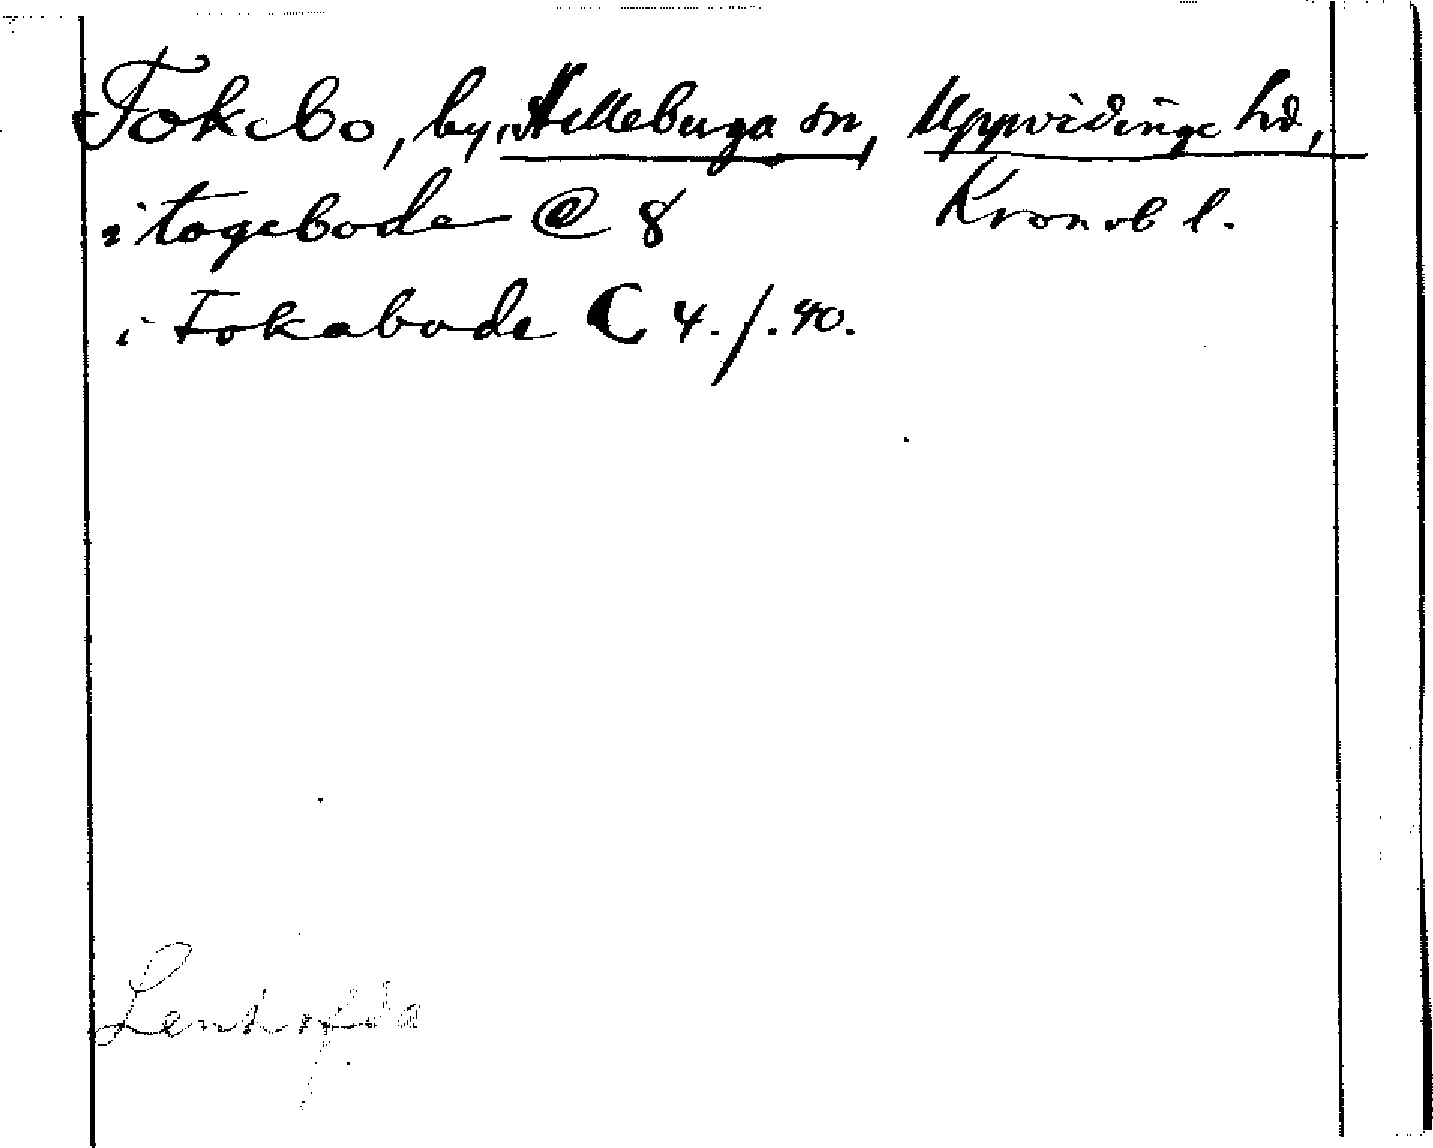 Tokebo, by, Älleberga sn, Uppvidinge hd,
i togebode @ 8 Kronob l.
i Tokabode C 4./.40.
Lenhofda